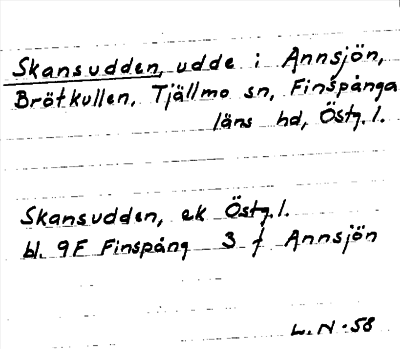 Skansudden, udde i Annsjön,
Brötkullen, Tjällmo sn, Finspånga
läns hd, Östg. l.
Skansudden, ek Östg. l.
bl. 9F Finspång 3 f Annsjön
L. N. 58